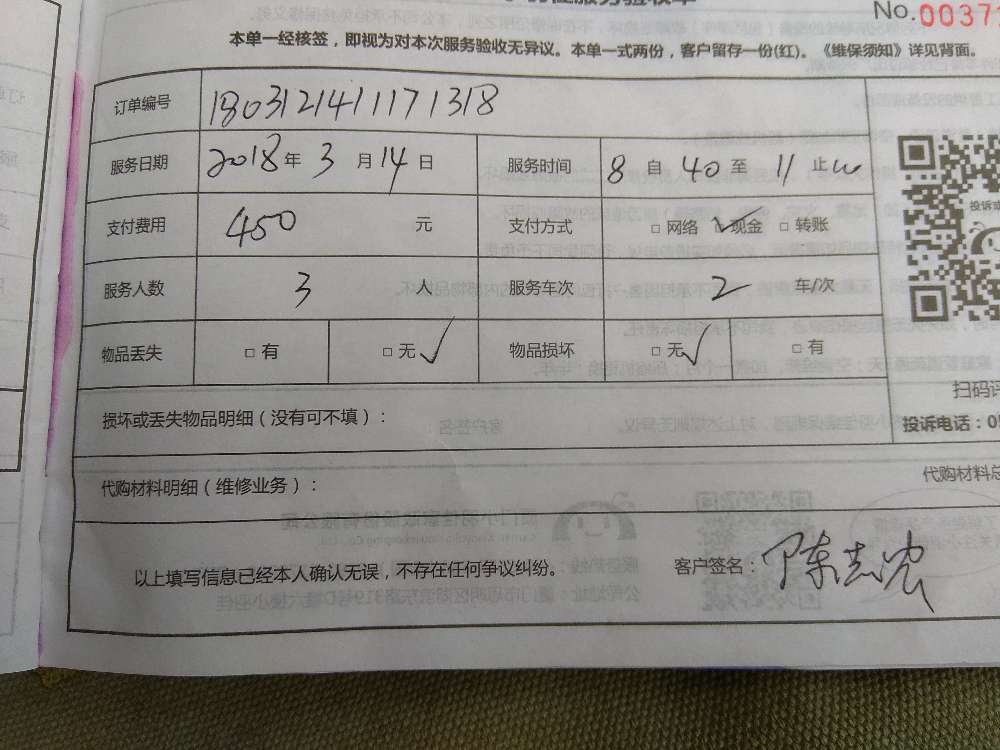 No.0037
本单一经核签，即视为对本次服务验收无异议。本单一式两份，客户留存一份(红)。《维保须知》详见背面。
订单编号 1803121411171318
服务日期 2018年3月14日 服务时间 8自40至11止
支付费用 450元 支付方式 □网络 □现金 □转账
服务人数 3人 服务车次 2车/次
物品丢失 □有 □无 物品损坏 □无 □有
损坏或丢失物品明细（没有可不填）：
扫码评
投诉电话：05
代购材料明细（维修业务）： 代购材料总
以上填写信息已经本人确认无误，不存在任何争议纠纷。 客户签名：陈志忠